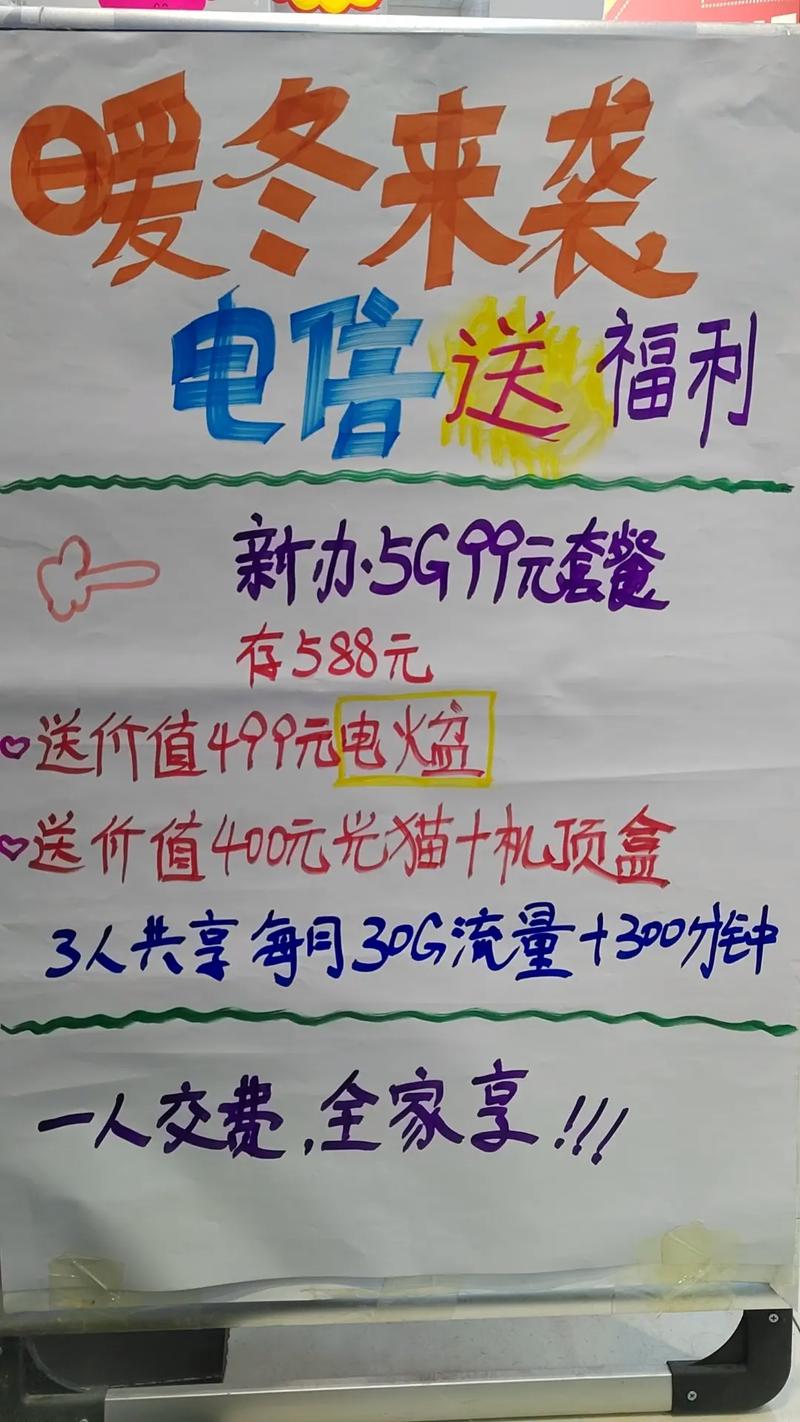 暖冬来袭
电信送福利
新办·5G99元套餐
存588元
送价值499元电火盆
送价值400元光猫+机顶盒
3人共享每月30G流量+300分钟
一人交费,全家享!!!